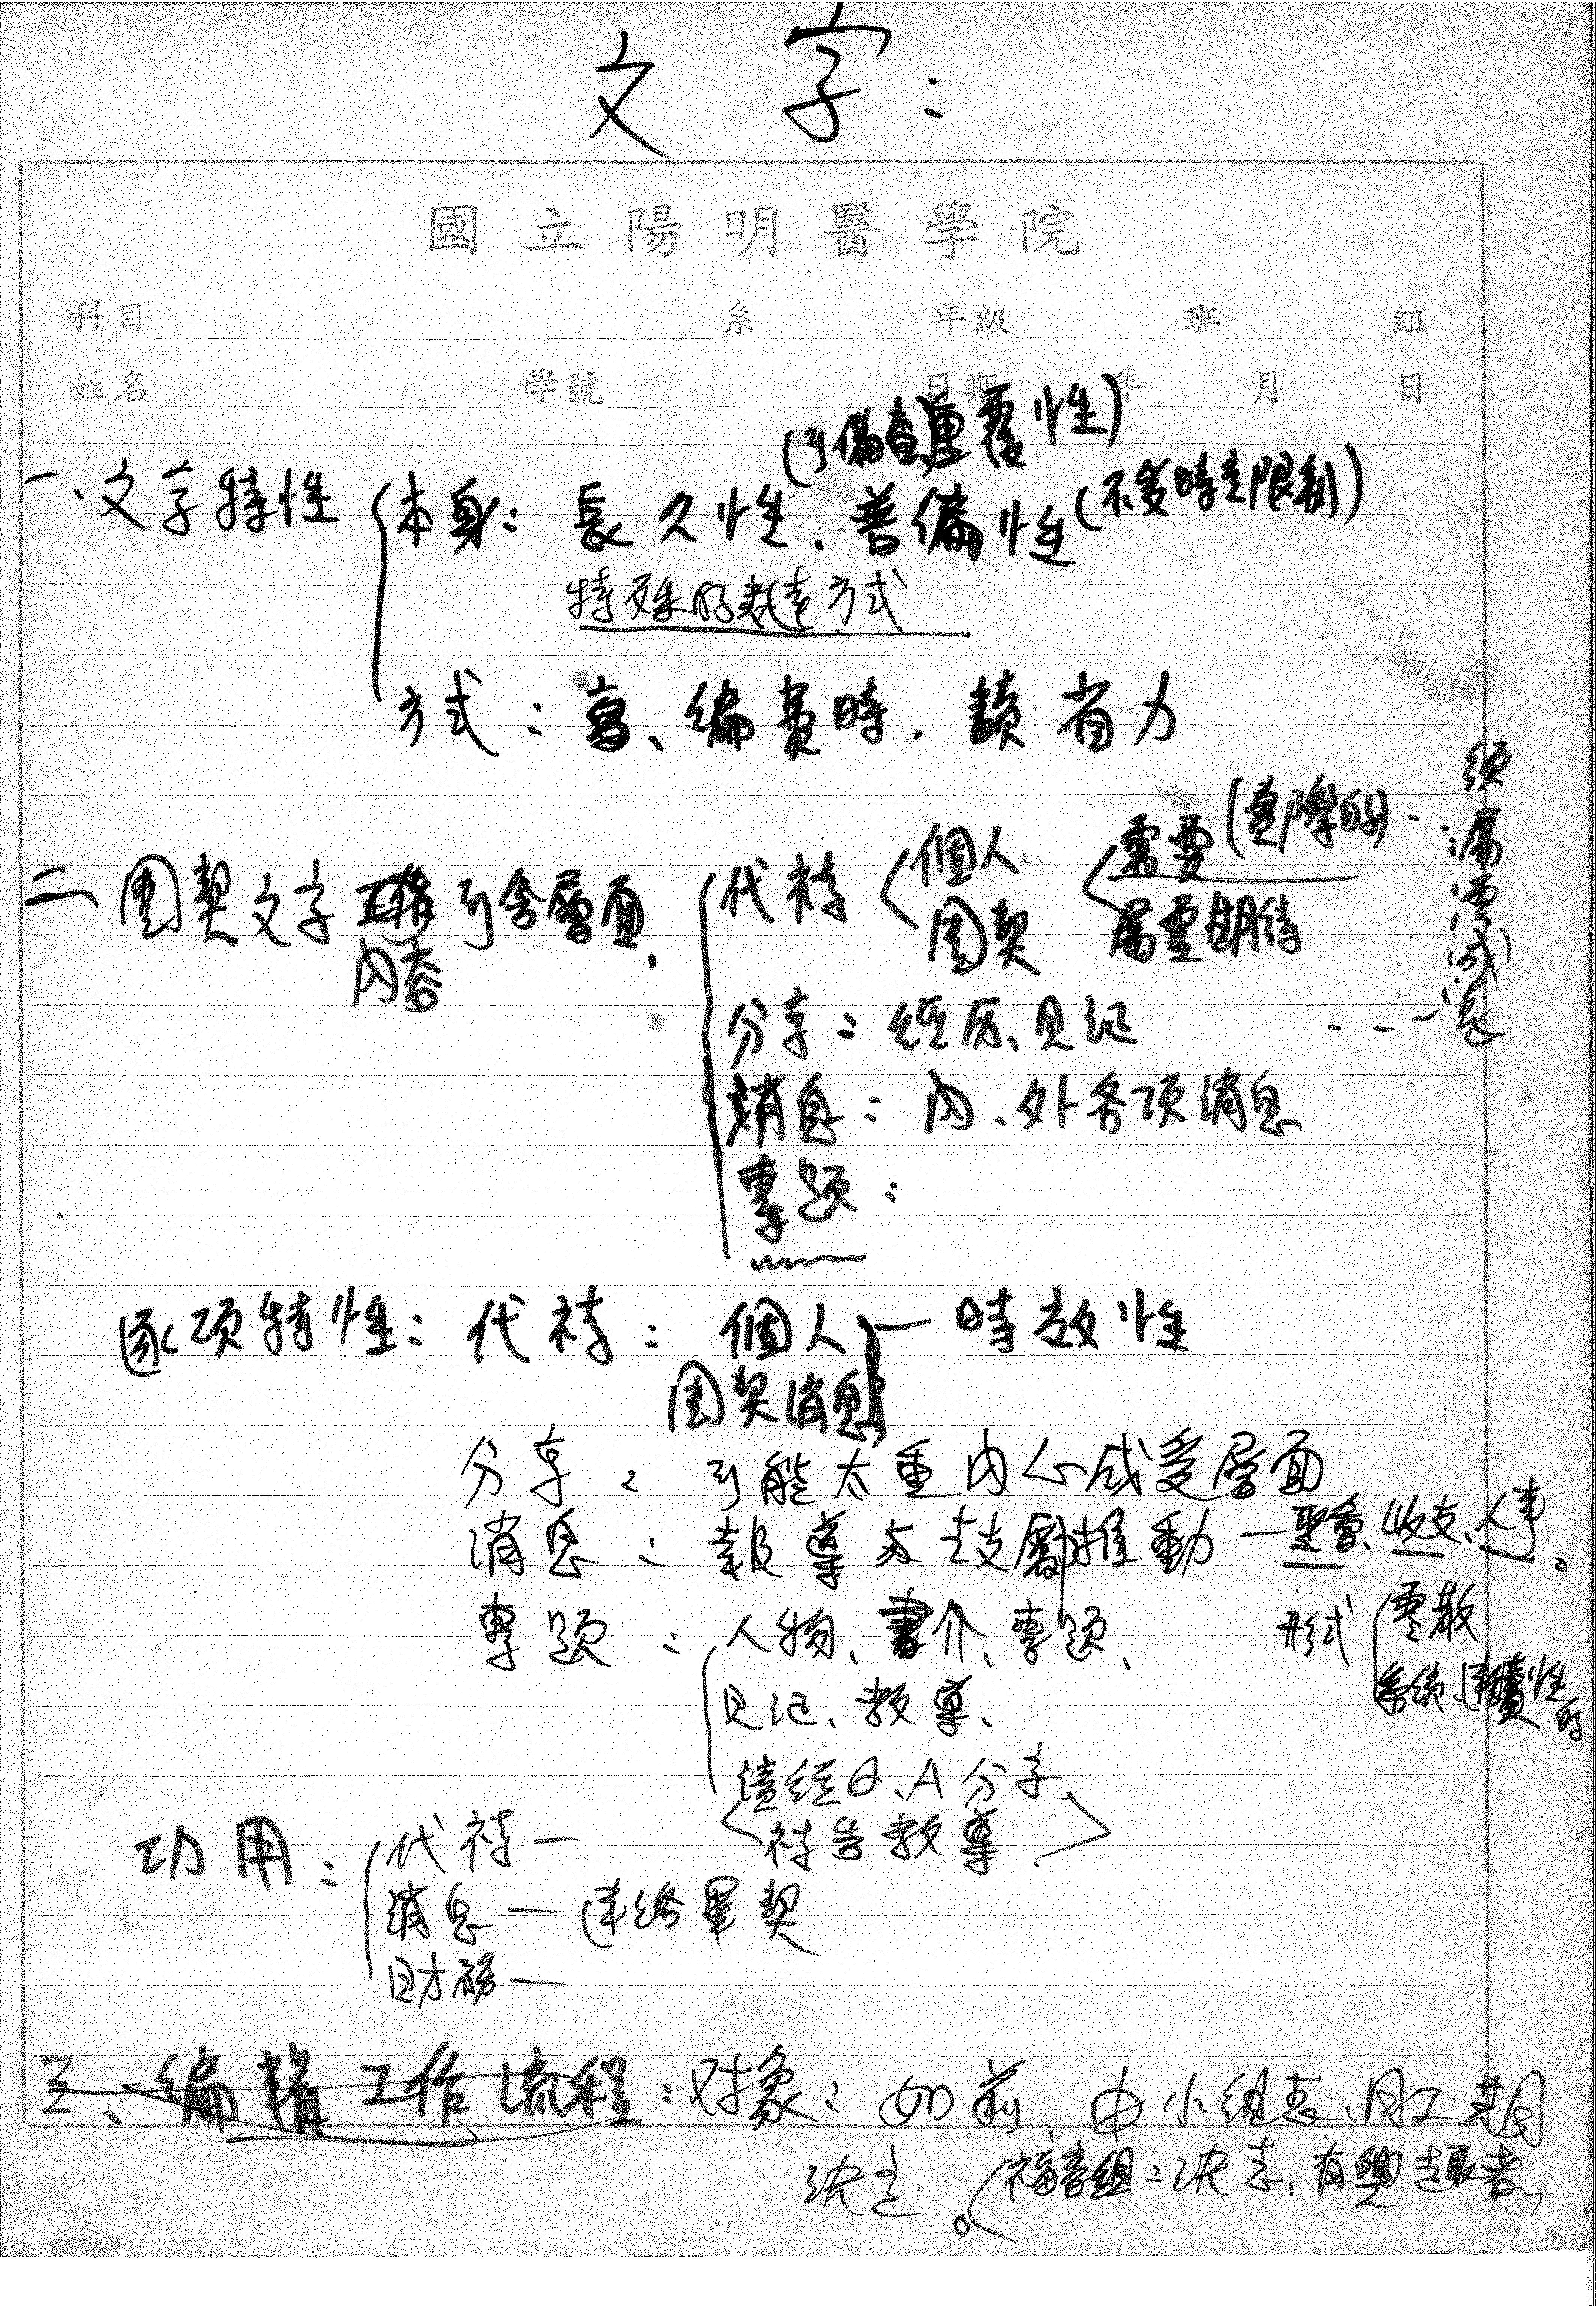 文字：
國立陽明醫學院
科目 系 年級 班 組
姓名 學號 日期 年 月 日
(可備查,重覆性)
一、文字特性 本身：長久性、普偏性(不受時空限制)
特殊的表達方式
方式：寫、編費時．讀省力
二 團契文字 可含層面，
內容
代禱 個人 團契 需要(實際的)
屬靈期待
須屬靈成長
分享：經历、見証
消息：內、外各项消息
專題：
逐项特性：代禱：個人 — 時效性
團契消息
分享：可能太重內心感受層面
消息：報導与鼓勵推動 — 聚會、收支、人事。
專題：人物、書介、專題、
形式 零散
系統、連續性的
見証、教導、
讀經Q、A分享
禱告教導
功用：代禱 —
消息 — 連絡 契
財務 —
三、編輯工作流程：对象：如前，由小組長、同工 期
決定。 福音組：決志、有興趣者、